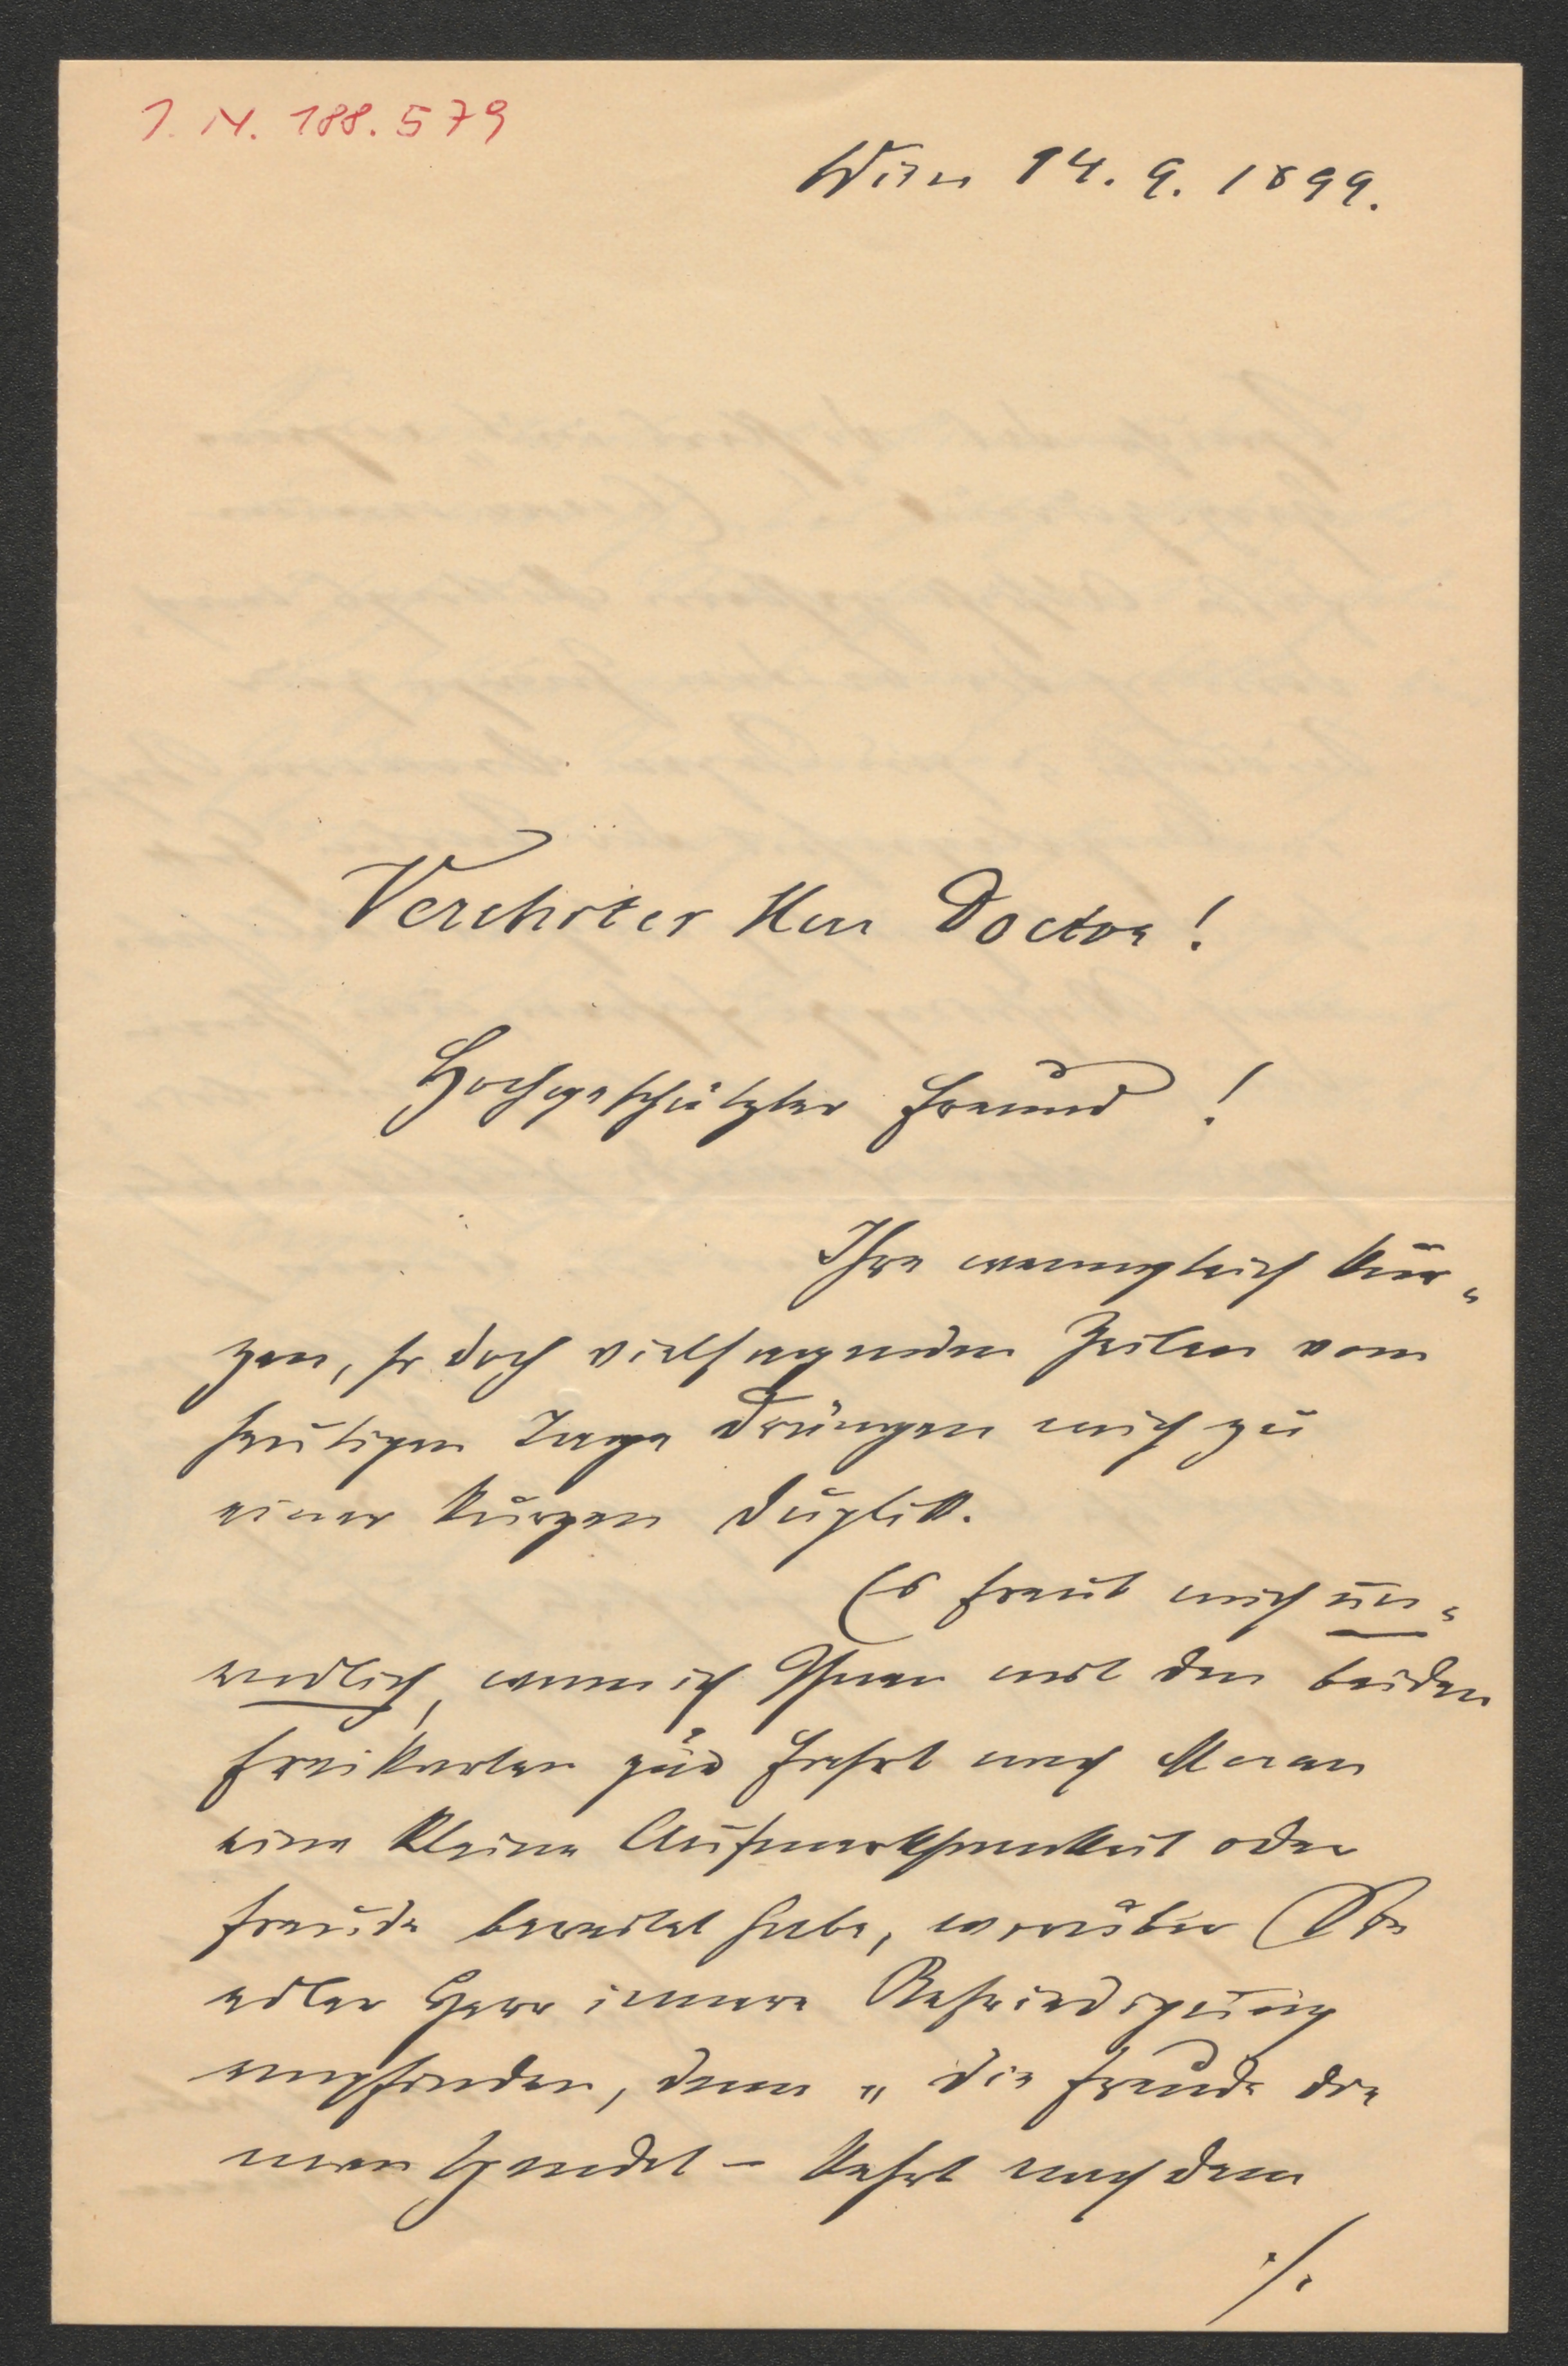 J. N. 188.579
Wien 14. 9. 1899.
Verehrter Herr Doctor!
Hochgeschätzter Freund!
Ihre wenngleich kur„
zen, so doch vielsagenden Zeilen vom
heutigen Tage drängen mich zu
einer kurzen Duplik.
Es freut mich un„
endlich, wenn ich Ihnen mit den beiden
Freikarten zur Fahrt nach Meran
eine kleine Aufmerksamkeit oder
Freude bereitet habe, worüber Sie
edler Herr innere Befriedigung
empfinden, denn „die Freude die
man spendet – kehrt nach dem
./.